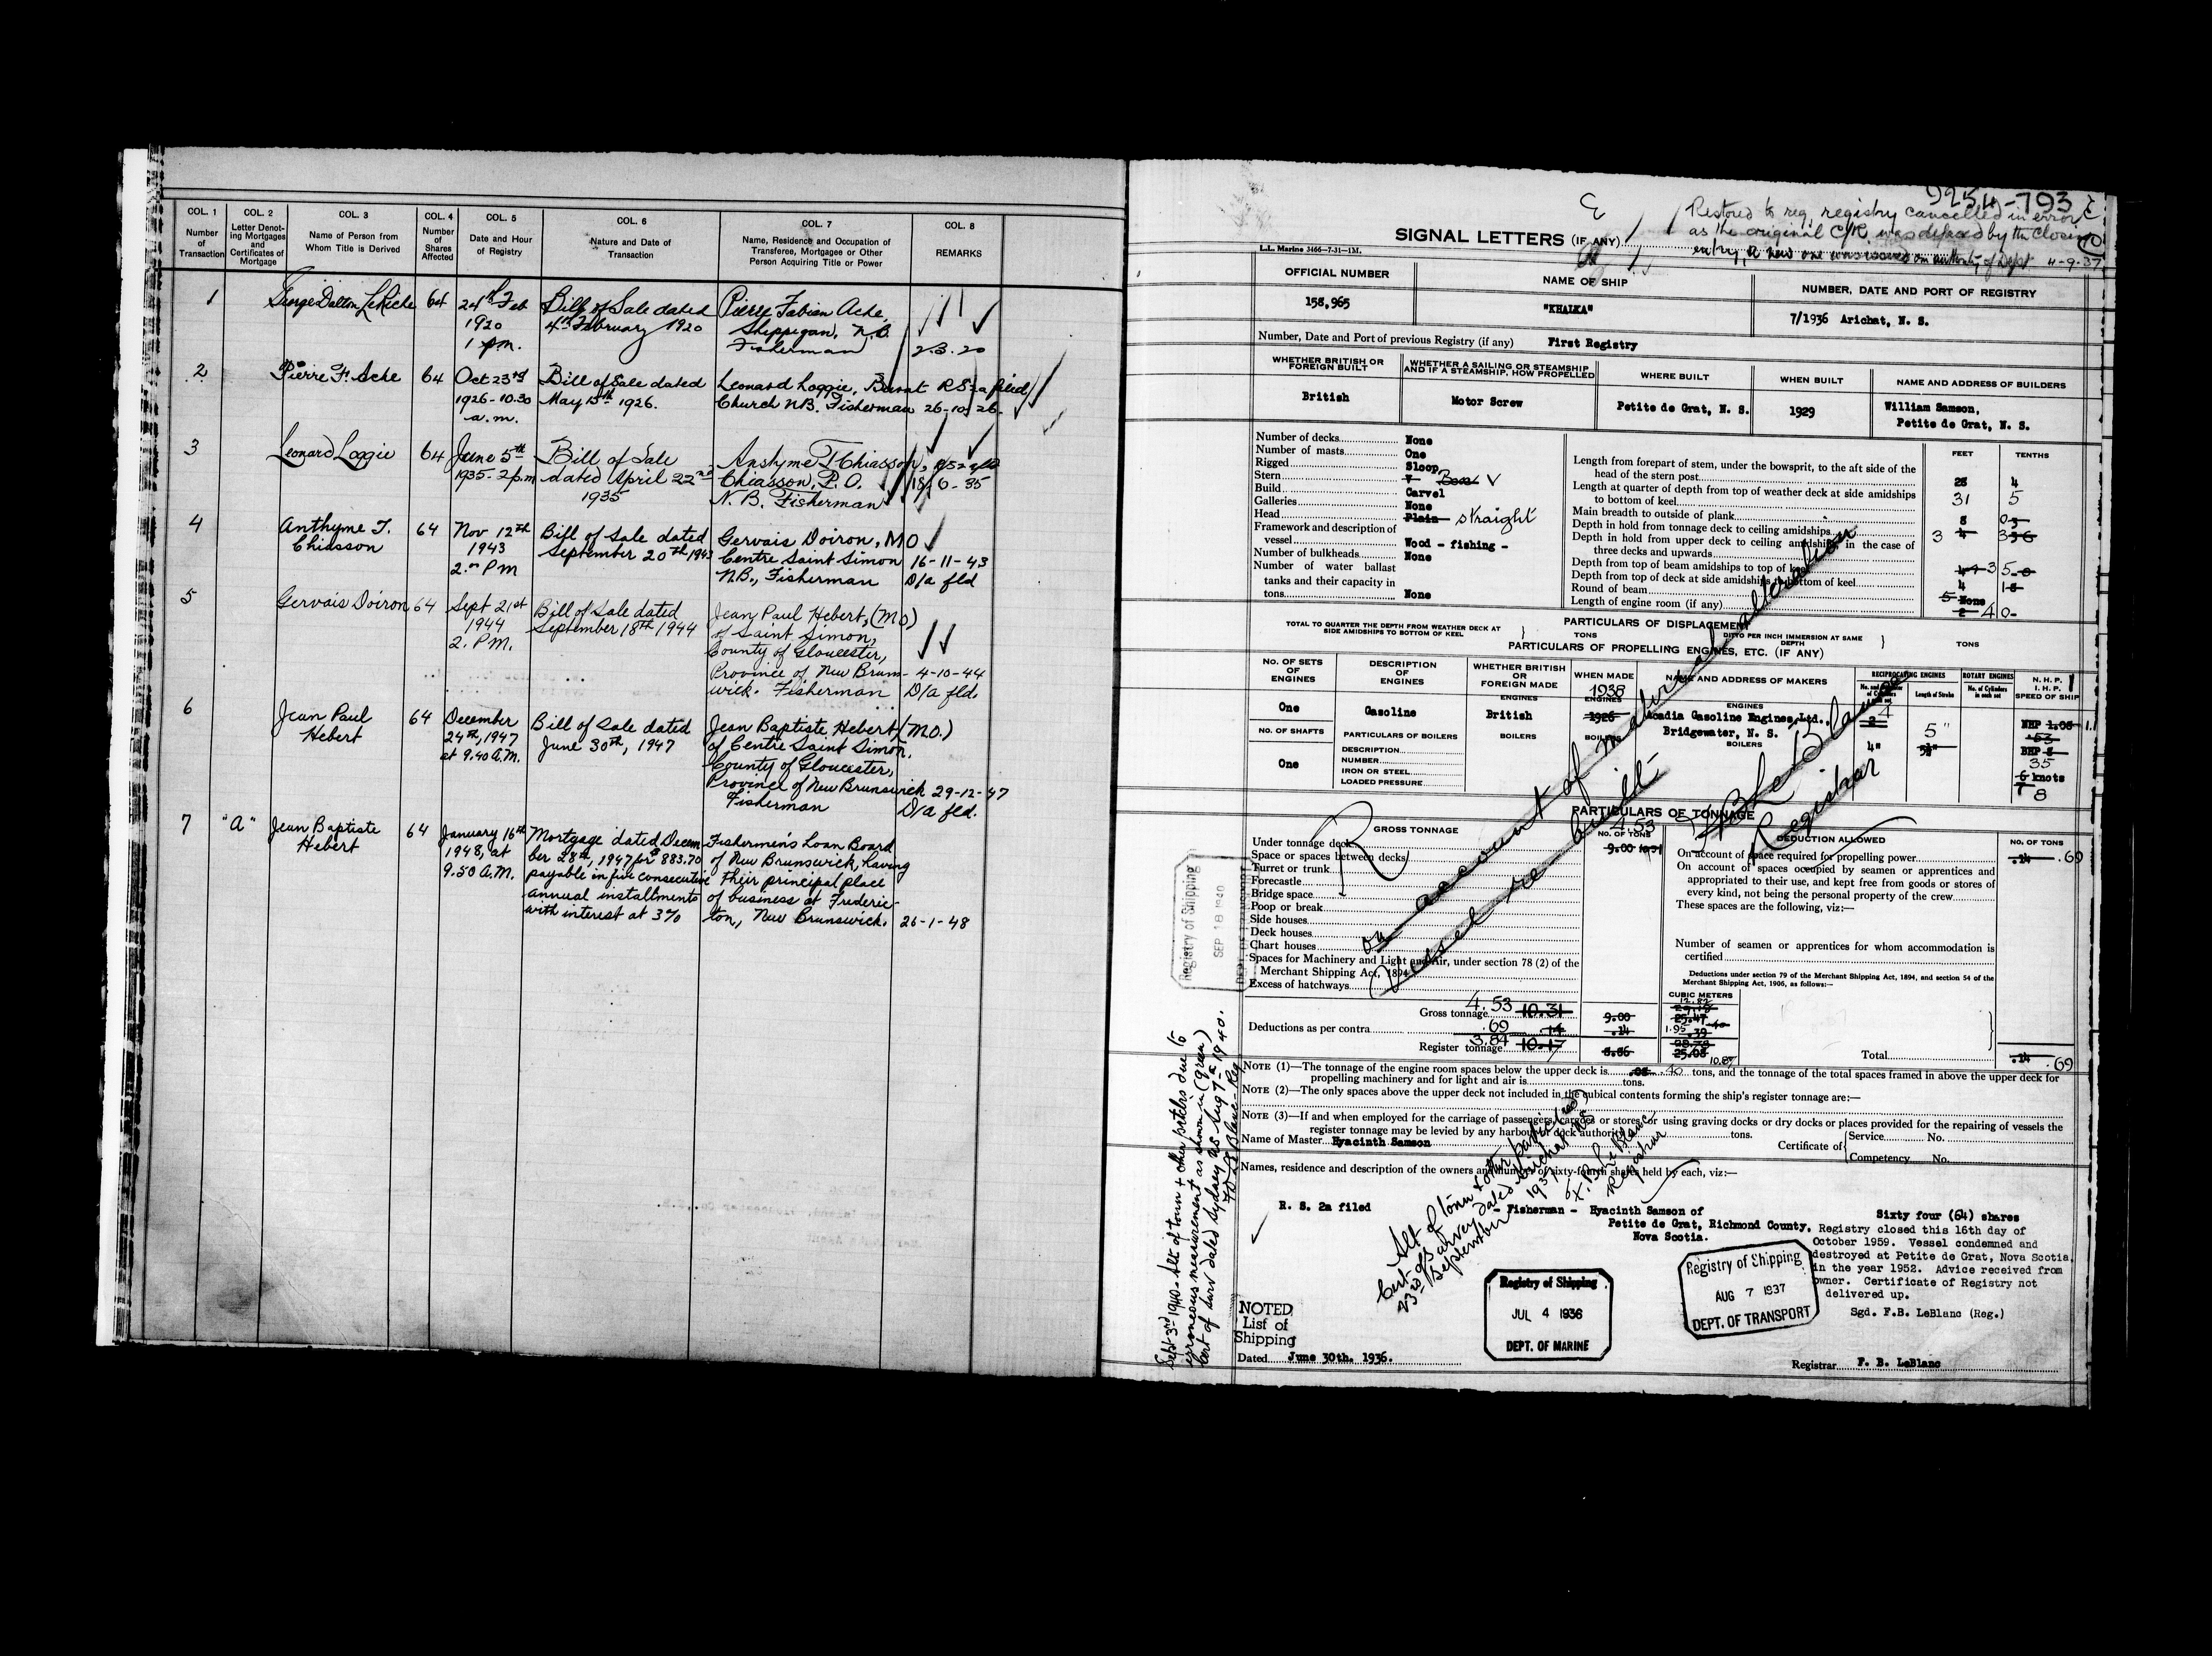 COL. 1
Number
of
Transaction
COL. 2
Letter Denot-
ing Mortgages
and
Certificates of
Mortgage
COL. 3
Name of Person from
Whom Title is Derived
COL. 4
Number
of
Shares
Affected
COL. 5
Date and Hour
of Registry
COL. 6
Nature and Date of
Transaction
COL. 7
Name, Residence and Occupation of
Transferee, Mortgagee or Other
Person Acquiring Title or Power
COL. 8
REMARKS
1
George Dalton LeRiche
64
24th Feb
1920
1 p.m.
Bill of Sale dated
4th February 1920
Pierre Fabien Ache,
Shippigan, N.B.
Fisherman
2.3.20
2
Pierre F. Ache
64
Oct 23rd
1926-10.30
a.m.
Bill of Sale dated
May 15th 1926.
Leonard Loggie, Burnt
Church N.B. Fisherman
RS 2a filed
26-10-26.
3
Leonard Loggie
64
June 5th
1935-2 p.m
Bill of Sale
dated April 22nd
1935
Anthyme T. Chiasson,
Chiasson, P.O.
N. B. Fisherman
18/6-35
4
Anthyme T.
Chiasson
64
Nov 12th
1943
2. PM
Bill of Sale dated
September 20th 1943
Gervais Doiron, MO
Centre Saint Simon
N.B., Fisherman
16-11-43
D/a fld
5
Gervais Doiron
64
Sept 21st
1944
2. P.M.
Bill of Sale dated
September 18th 1944
Jean Paul Hebert, (MO)
of Saint Simon,
County of Gloucester,
Province of New Bruns-
wick. Fisherman
4-10-44
D/a fld.
6
Jean Paul
Hebert
64
December
24th, 1947
at 9.40 A.M.
Bill of Sale dated
June 30th, 1947
Jean Baptiste Hebert, (M.O.)
of Centre Saint Simon,
County of Gloucester,
Province of New Brunswick
Fisherman
29-12-47
D/a fld.
7
"A"
Jean Baptiste
Hebert
64
January 16th
1948, at
9.50 A.M.
Mortgage dated Decem
ber 28th, 1947 for $883.70
payable in five consecutive
annual installments
with interest at 3%
Fishermen's Loan Board
of New Brunswick, having
their principal place
of business at Frederic-
ton, New Brunswick.
26-1-48
9254-793
Restored to reg, registry cancelled in error
as the original C/R. was defaced by the closing
entry, a new one was issued on authority of Dept 4-9-37
SIGNAL LETTERS (IF ANY)
L.L. Marine 3466-7-31-1M.
OFFICIAL NUMBER
158,965
NAME OF SHIP
"KHALKA"
NUMBER, DATE AND PORT OF REGISTRY
7/1936 Arichat, N. S.
Number, Date and Port of previous Registry (if any) First Registry
WHETHER BRITISH OR
FOREIGN BUILT
British
WHETHER A SAILING OR STEAMSHIP
AND IF A STEAMSHIP, HOW PROPELLED
Motor Screw
WHERE BUILT
Petite de Grat, N. S.
WHEN BUILT
1929
NAME AND ADDRESS OF BUILDERS
William Samson,
Petite de Grat, N. S.
Number of decks None
Number of masts One
Rigged Sloop
Stern V Boat
Build Carvel
Galleries None
Head Plain straight
Framework and description of
vessel Wood - fishing -
Number of bulkheads None
Number of water ballast
tanks and their capacity in
tons None
FEET
TENTHS
Length from forepart of stem, under the bowsprit, to the aft side of the
head of the stern post
Length at quarter of depth from top of weather deck at side amidships
to bottom of keel 31 5
Main breadth to outside of plank
Depth in hold from tonnage deck to ceiling amidships
Depth in hold from upper deck to ceiling amidships, in the case of
three decks and upwards
Depth from top of beam amidships to top of keel
Depth from top of deck at side amidships to bottom of keel
Round of beam
Length of engine room (if any)
PARTICULARS OF DISPLACEMENT
TOTAL TO QUARTER THE DEPTH FROM WEATHER DECK AT
SIDE AMIDSHIPS TO BOTTOM OF KEEL
TONS
DITTO PER INCH IMMERSION AT SAME
DEPTH
TONS
PARTICULARS OF PROPELLING ENGINES, ETC. (IF ANY)
NO. OF SETS
OF
ENGINES
One
NO. OF SHAFTS
One
DESCRIPTION
OF
ENGINES
Gasoline
PARTICULARS OF BOILERS
DESCRIPTION
NUMBER
IRON OR STEEL
LOADED PRESSURE
WHETHER BRITISH
OR
FOREIGN MADE
ENGINES
British
BOILERS
WHEN MADE
1938
ENGINES
1926
BOILERS
NAME AND ADDRESS OF MAKERS
ENGINES
Acadia Gasoline Engines, Ltd.,
Bridgewater, N. S.
BOILERS
RECIPROCATING ENGINES
Length of Stroke
5"
4"
ROTARY ENGINES
No. of Cylinders
in each set
N. H. P.
I. H. P.
SPEED OF SHIP
NHP 1.05
.53
BHP 8
35
6 knots
7 8
on account of material alteration
Vessel re built
F B LeBlanc
Registrar
PARTICULARS OF TONNAGE
GROSS TONNAGE
NO. OF TONS
4.53
9.00 10.31
Under tonnage deck
Space or spaces between decks
Turret or trunk
Forecastle
Bridge space
Poop or break
Side houses
Deck houses
Chart houses
Spaces for Machinery and Light and Air, under section 78 (2) of the
Merchant Shipping Act, 1894
Excess of hatchways
Gross tonnage 4.53 10.31 9.00
Deductions as per contra .69 .14 .14
Register tonnage 3.84 10.17 8.86
DEDUCTION ALLOWED
NO. OF TONS
On account of space required for propelling power .14 .69
On account of spaces occupied by seamen or apprentices and
appropriated to their use, and kept free from goods or stores of
every kind, not being the personal property of the crew
These spaces are the following, viz:—
Number of seamen or apprentices for whom accommodation is
certified
Deductions under section 79 of the Merchant Shipping Act, 1894, and section 54 of the
Merchant Shipping Act, 1906, as follows:—
CUBIC METERS
12.82
25.47
1.95 .39
25.08 10.87
Total .14 .69
NOTE (1)—The tonnage of the engine room spaces below the upper deck is .40 tons, and the tonnage of the total spaces framed in above the upper deck for
propelling machinery and for light and air is tons.
NOTE (2)—The only spaces above the upper deck not included in the cubical contents forming the ship's register tonnage are:—
NOTE (3)—If and when employed for the carriage of passengers, cargoes or stores, or using graving docks or dry docks or places provided for the repairing of vessels the
register tonnage may be levied by any harbour or dock authority tons.
Name of Master Hyacinth Samson
Certificate of
Service No.
Competency No.
Names, residence and description of the owners and number of sixty-fourth shares held by each, viz:—
R. S. 2a filed
- Fisherman - Hyacinth Samson of
Petite de Grat, Richmond County,
Nova Scotia.
Sixty four (64) shares
Registry closed this 16th day of
October 1959. Vessel condemned and
destroyed at Petite de Grat, Nova Scotia,
in the year 1952. Advice received from
owner. Certificate of Registry not
delivered up.
Sgd. F.B. LeBlanc (Reg.)
Alt of tonn & other partics (red)
Cert. of Survey dated Arichat NS
23rd September 1937
F. B. LeBlanc
Registrar
Registry of Shipping
SEP 18 1940
Sept 3rd 1940 - Alt. of tonn + other partclrs due to
erroneous measurement as shown in (green)
Cert of Surv dated Sydney NS Aug 7th 1940.
F B LeBlanc - Reg
NOTED
List of
Shipping
Registry of Shipping
JUL 4 1936
DEPT. OF MARINE
Registry of Shipping
AUG 7 1937
DEPT. OF TRANSPORT
Dated June 30th. 1936.
Registrar F. B. LeBlanc